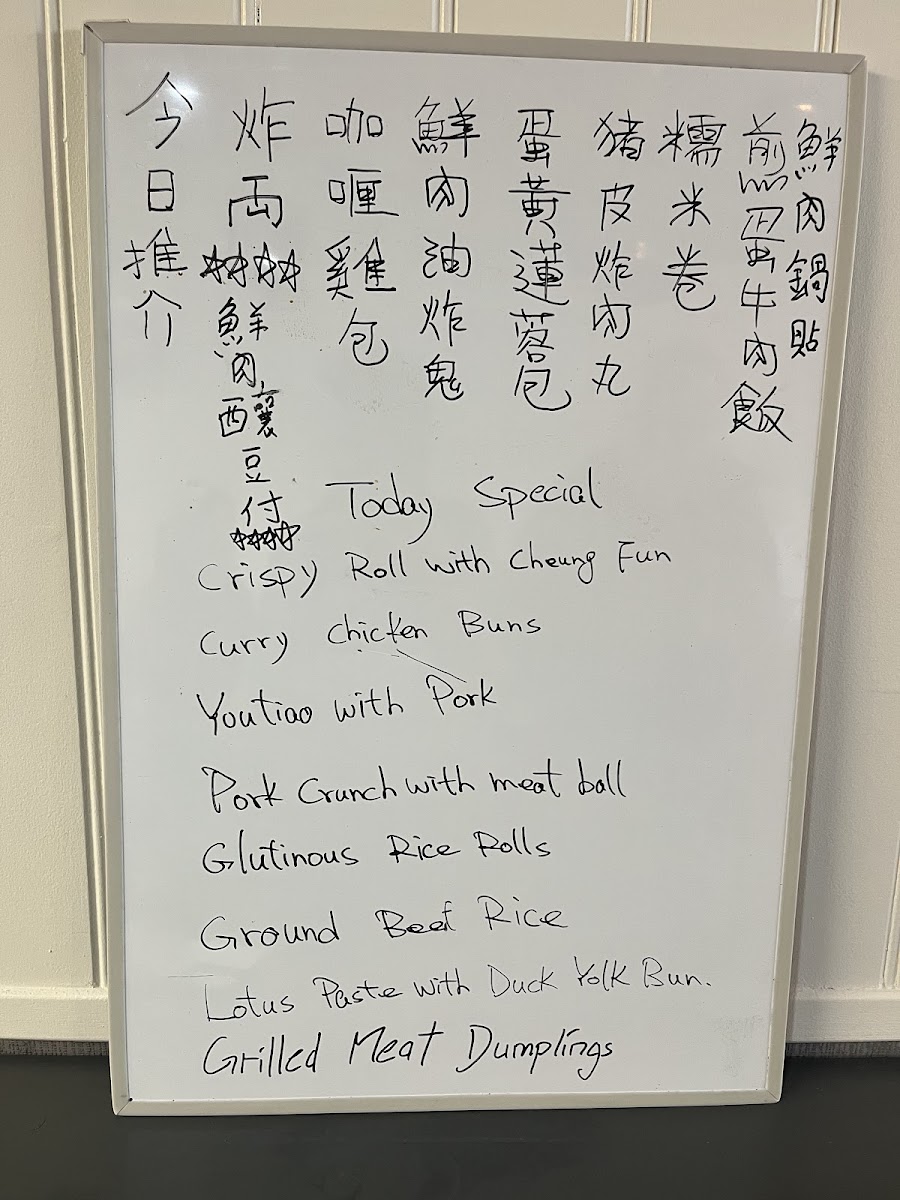 今日推介
炸両
☆☆☆☆
鮮肉釀豆付
☆☆☆☆
咖喱雞包
鮮肉油炸鬼
蛋黃蓮蓉包
豬皮炸肉丸
糯米卷
煎蛋牛肉飯
鮮肉鍋貼
Today Special
Crispy Roll with Cheung Fun
Curry Chicken Buns
Youtiao with Pork
Pork Crunch with meat ball
Glutinous Rice Rolls
Ground Beef Rice
Lotus Paste with Duck Yolk Bun.
Grilled Meat Dumplings